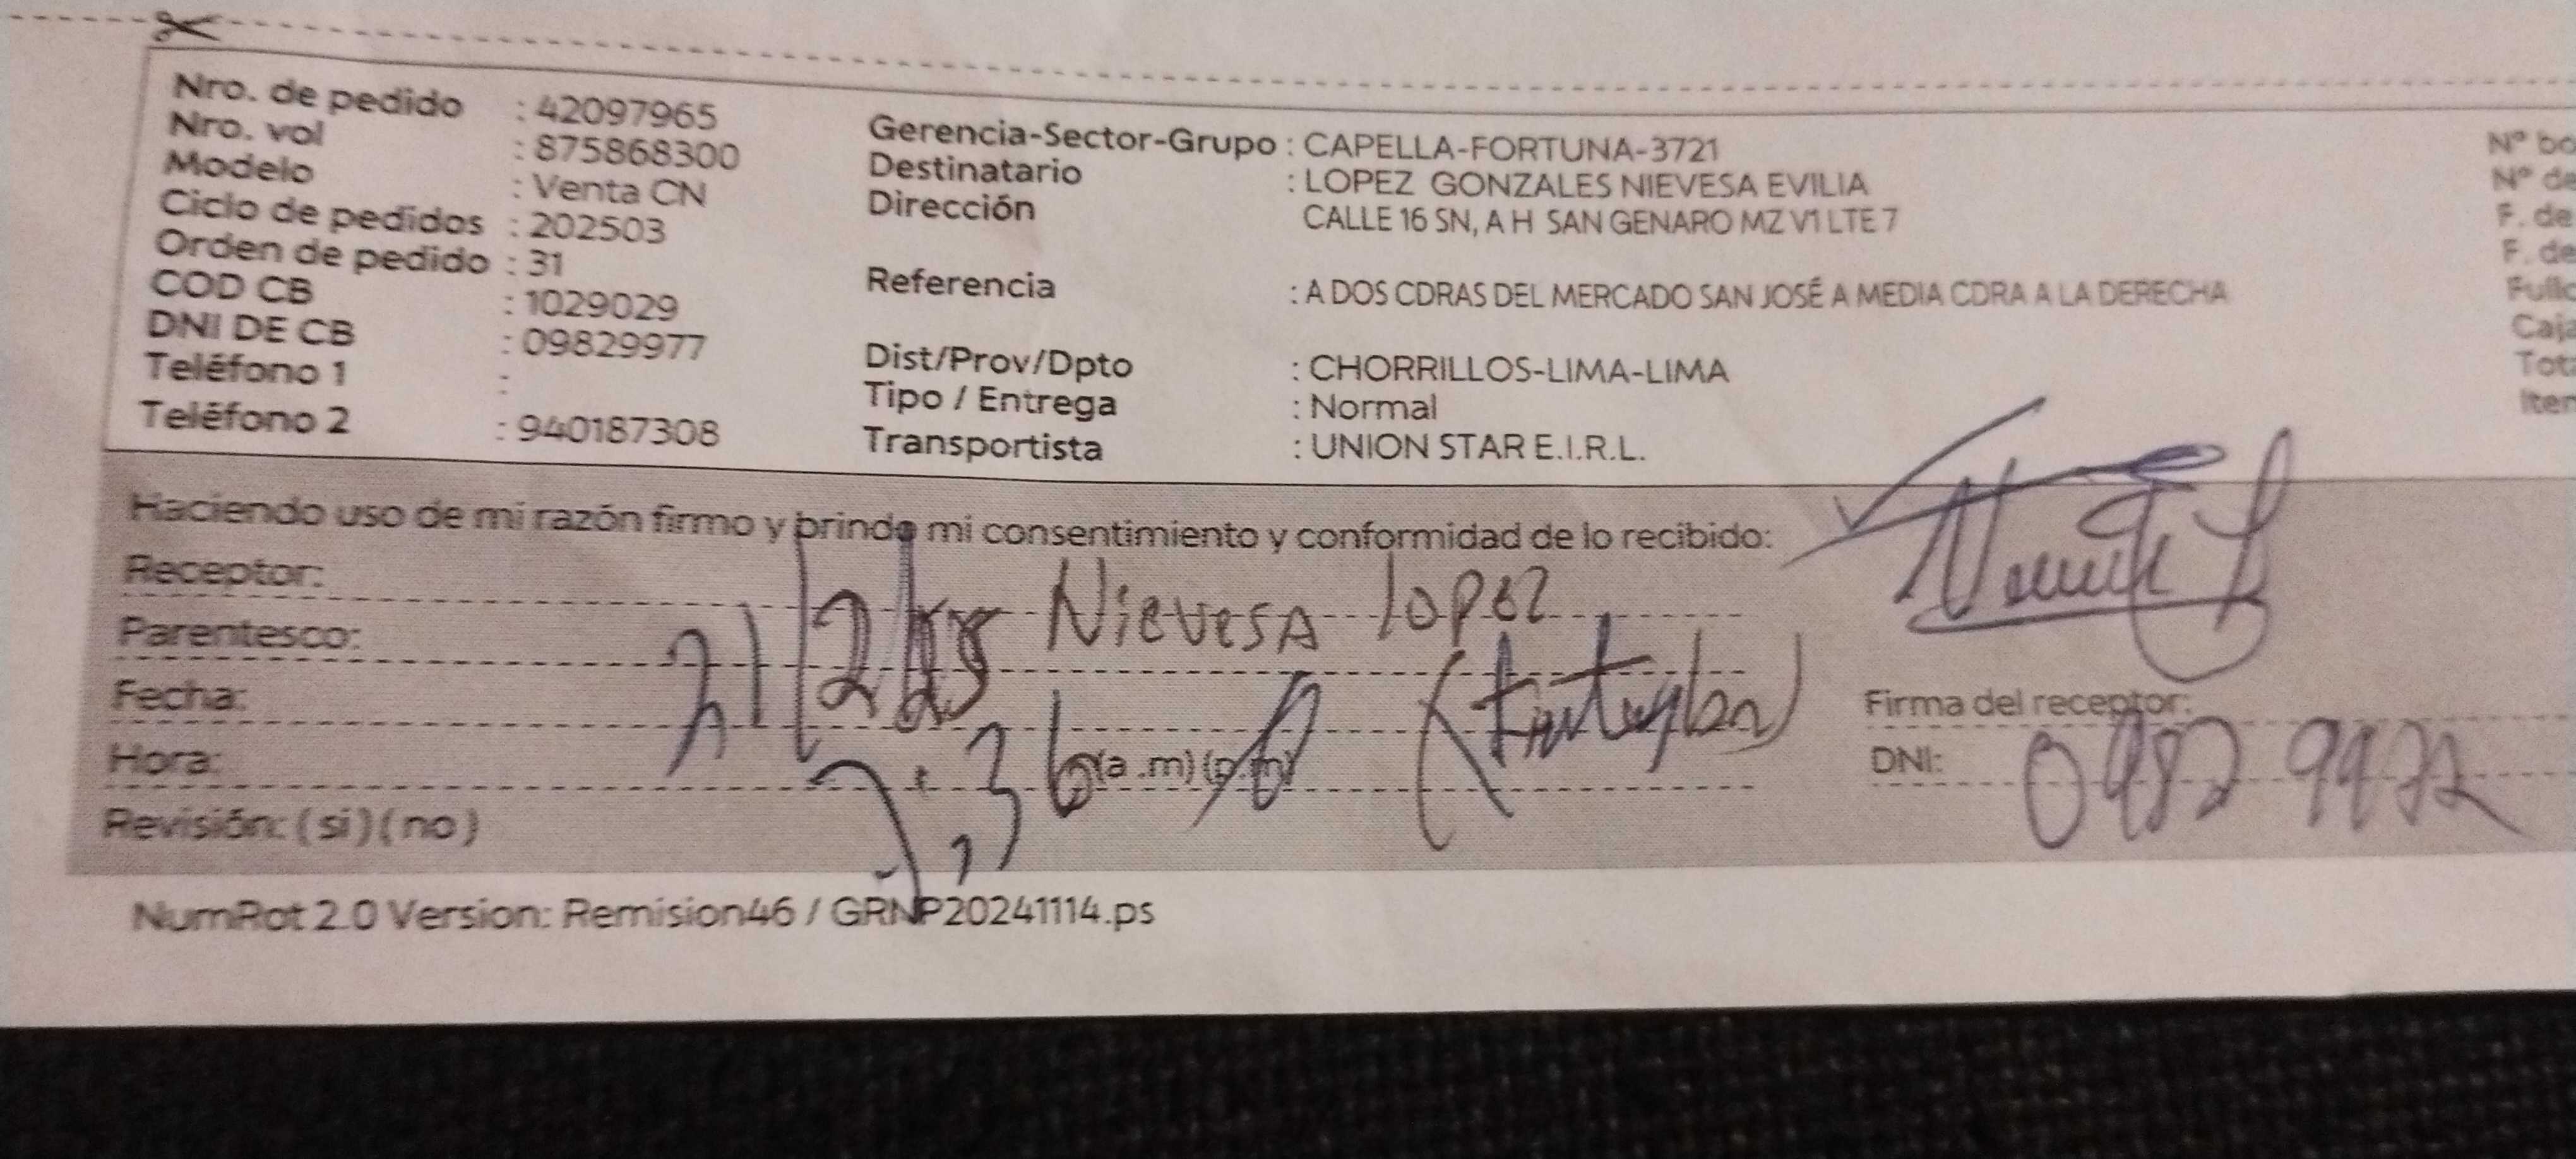 Nro. de pedido : 42097965
Nro. vol : 875868300
Modelo : Venta CN
Ciclo de pedidos : 202503
Orden de pedido : 31
COD CB : 1029029
DNI DE CB : 09829977
Teléfono 1 :
Teléfono 2 : 940187308
Gerencia-Sector-Grupo : CAPELLA-FORTUNA-3721
Destinatario : LOPEZ GONZALES NIEVESA EVILIA
Dirección CALLE 16 SN, A H SAN GENARO MZ V1 LTE 7
Referencia : A DOS CDRAS DEL MERCADO SAN JOSÉ A MEDIA CDRA A LA DERECHA
Dist/Prov/Dpto : CHORRILLOS-LIMA-LIMA
Tipo / Entrega : Normal
Transportista : UNION STAR E.I.R.L.
Nº bo
Nº de
F. de
F. de
Fullc
Caja
Tota
Iter
Haciendo uso de mi razón firmo y brindo mi consentimiento y conformidad de lo recibido:
Receptor: Nievesa lopez
Parentesco: (titular)
Fecha: 21/2/25
Hora: 7:36 (a .m) (p.m)
Revisión: ( si ) ( no )
Firma del receptor:
DNI:
NumRot 2.0 Version: Remision46 / GRNP20241114.ps